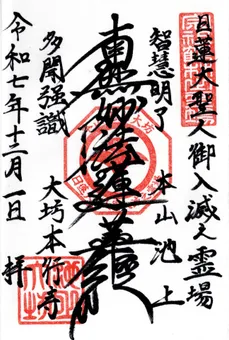 日蓮大聖人御入滅之霊場
智慧明了 本山池上
南無妙法蓮華経
多聞强識 大坊本行寺
令和七年十二月一日 拝